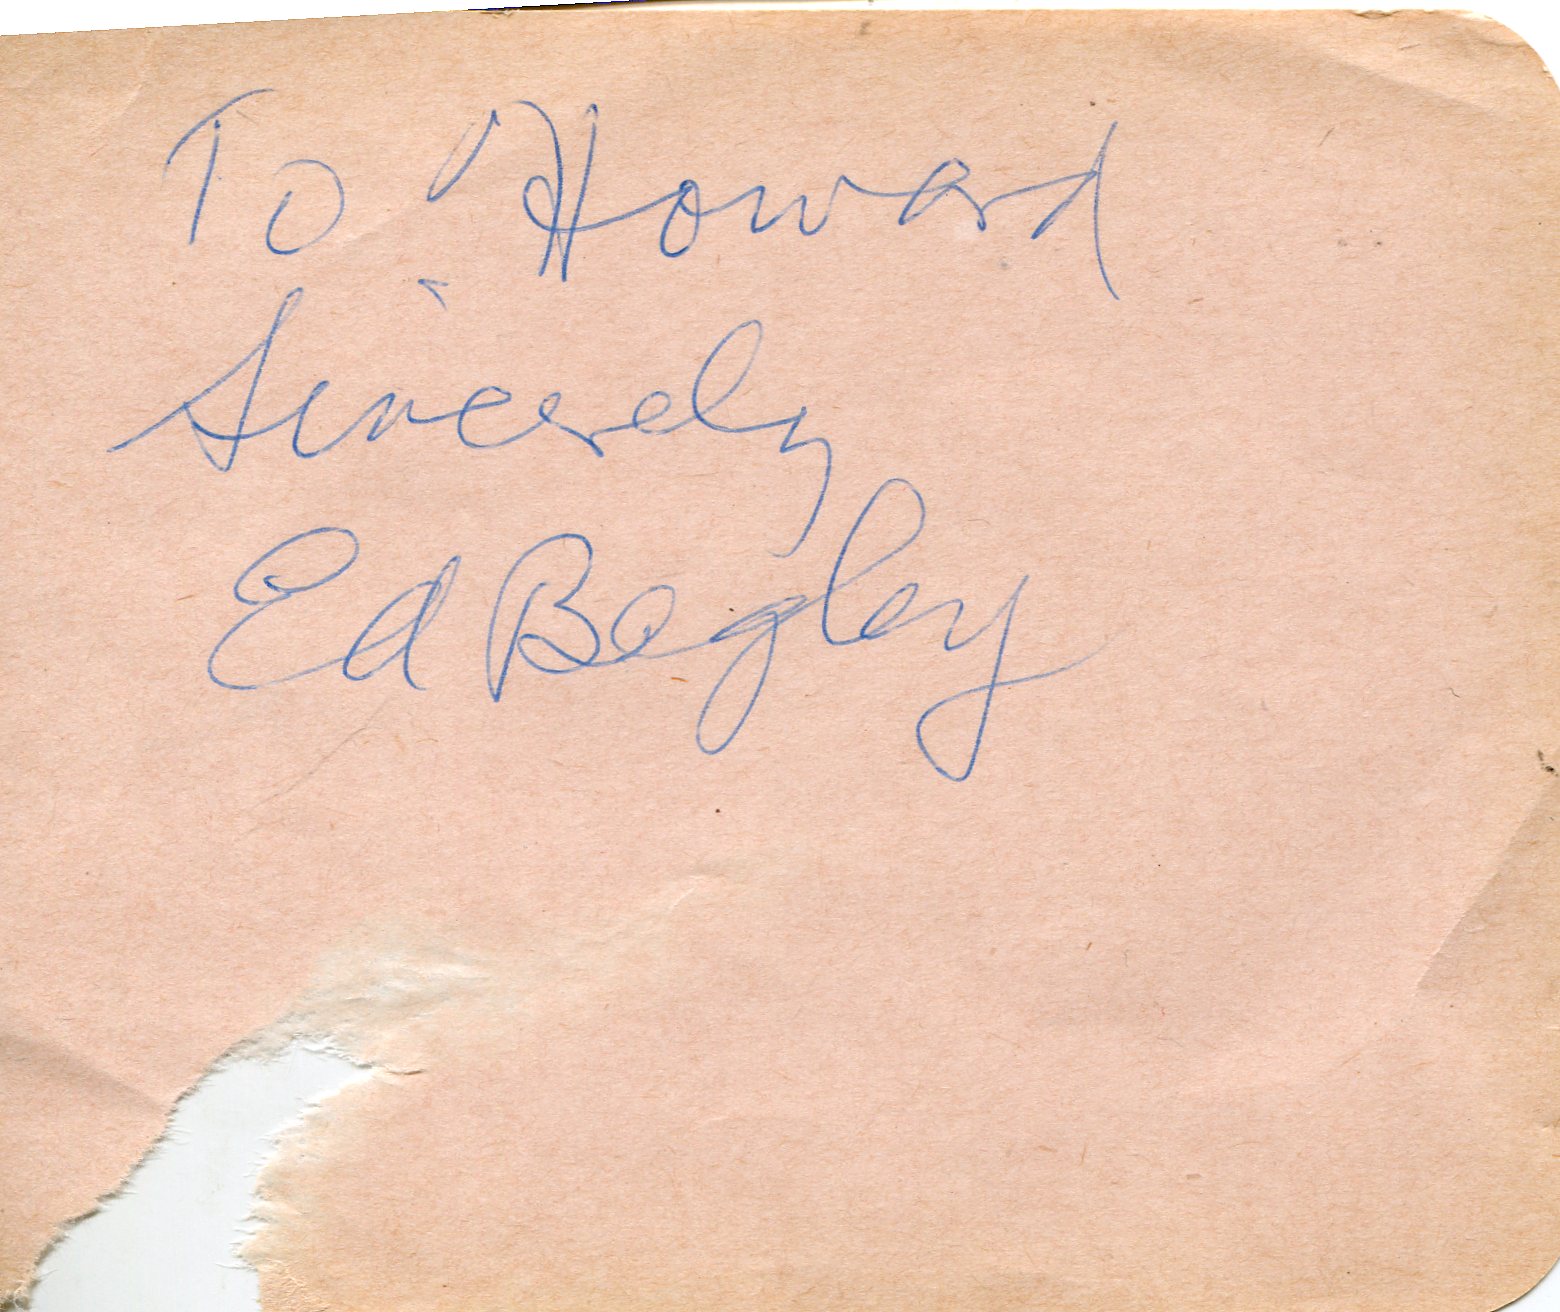 To Howard
Sincerely
Ed Begley